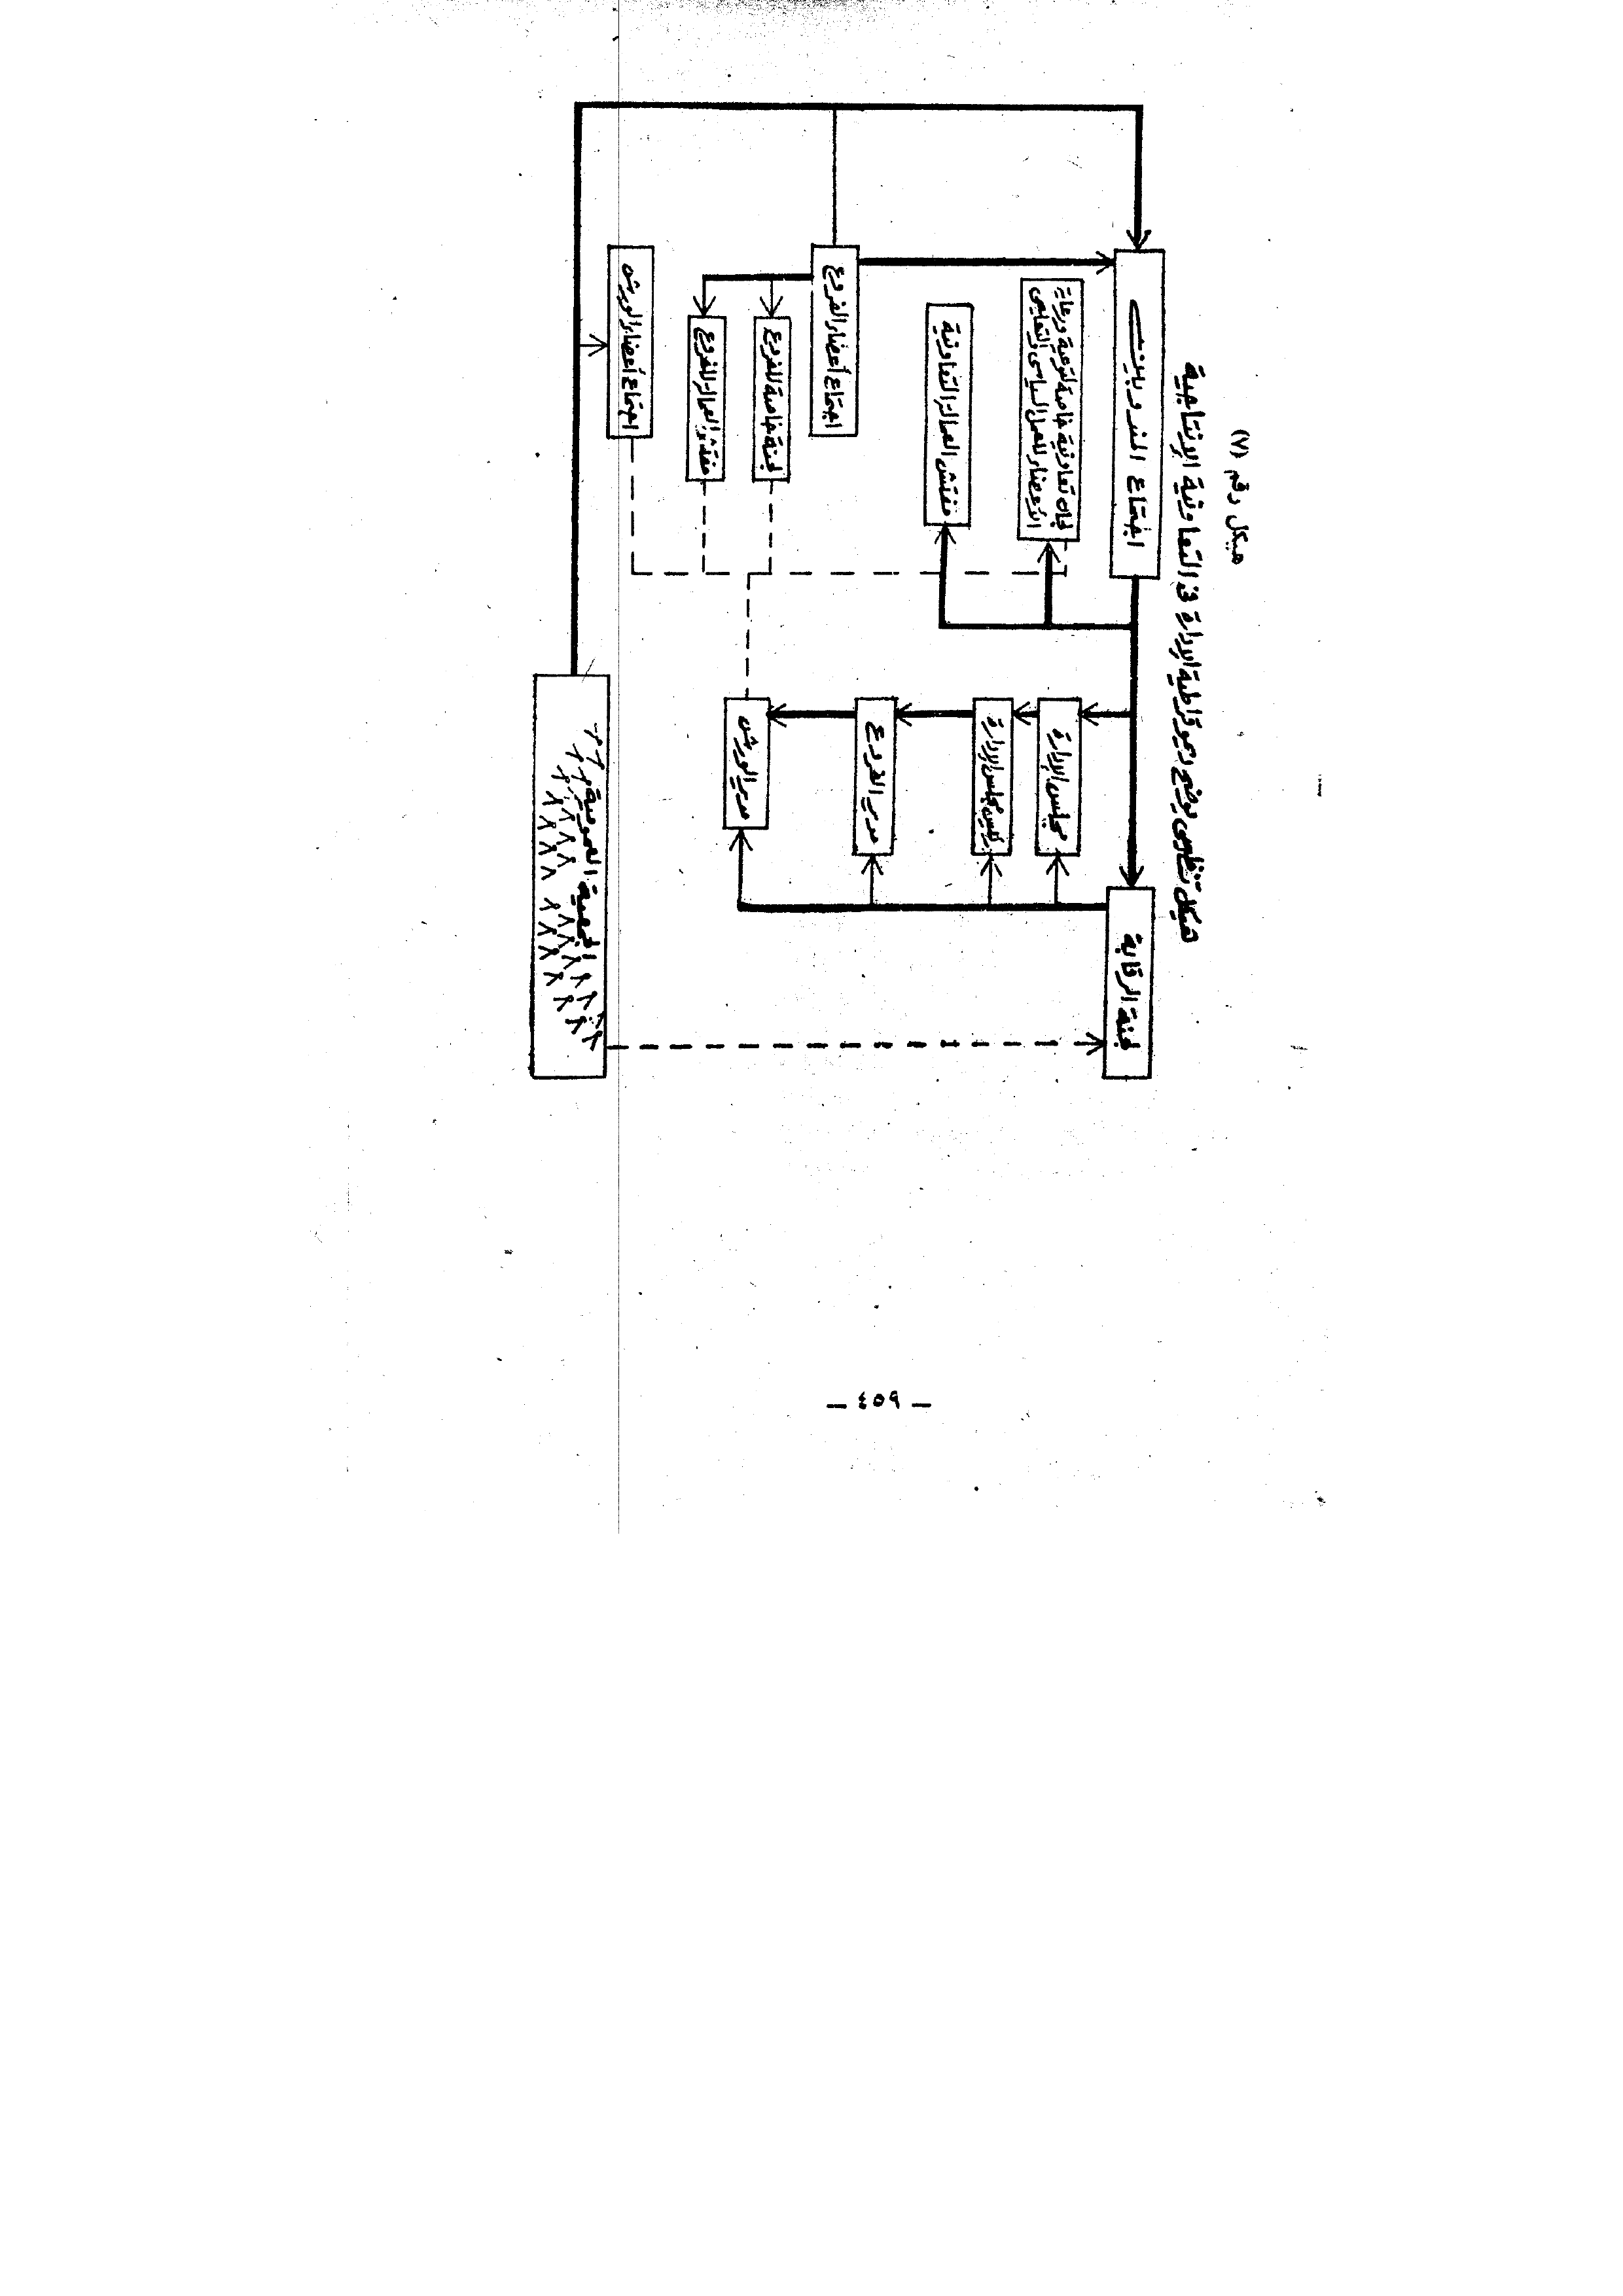 هيكل رقم (٧)
هيكل تنظيمى يوضح ديموقراطية الإدارة فى التعاونية الإنتاجية
اجتماع المندوبين
لجنة الرقابة
لجان تعاونية خاصة لتوعية ورعاية
الأعضاء للعمل السياسى والتعليمى
مفتش العمال التعاونية
مجلس الإدارة
رئيس مجلس الإدارة
اجتماع أعضاء الفروع
مدير الفروع
لجنة خاصة للفروع
مفتش العمال للفروع
مدير الورش
اجتماع أعضاء الورش
الجمعية العمومية
— ٤٥٩ —